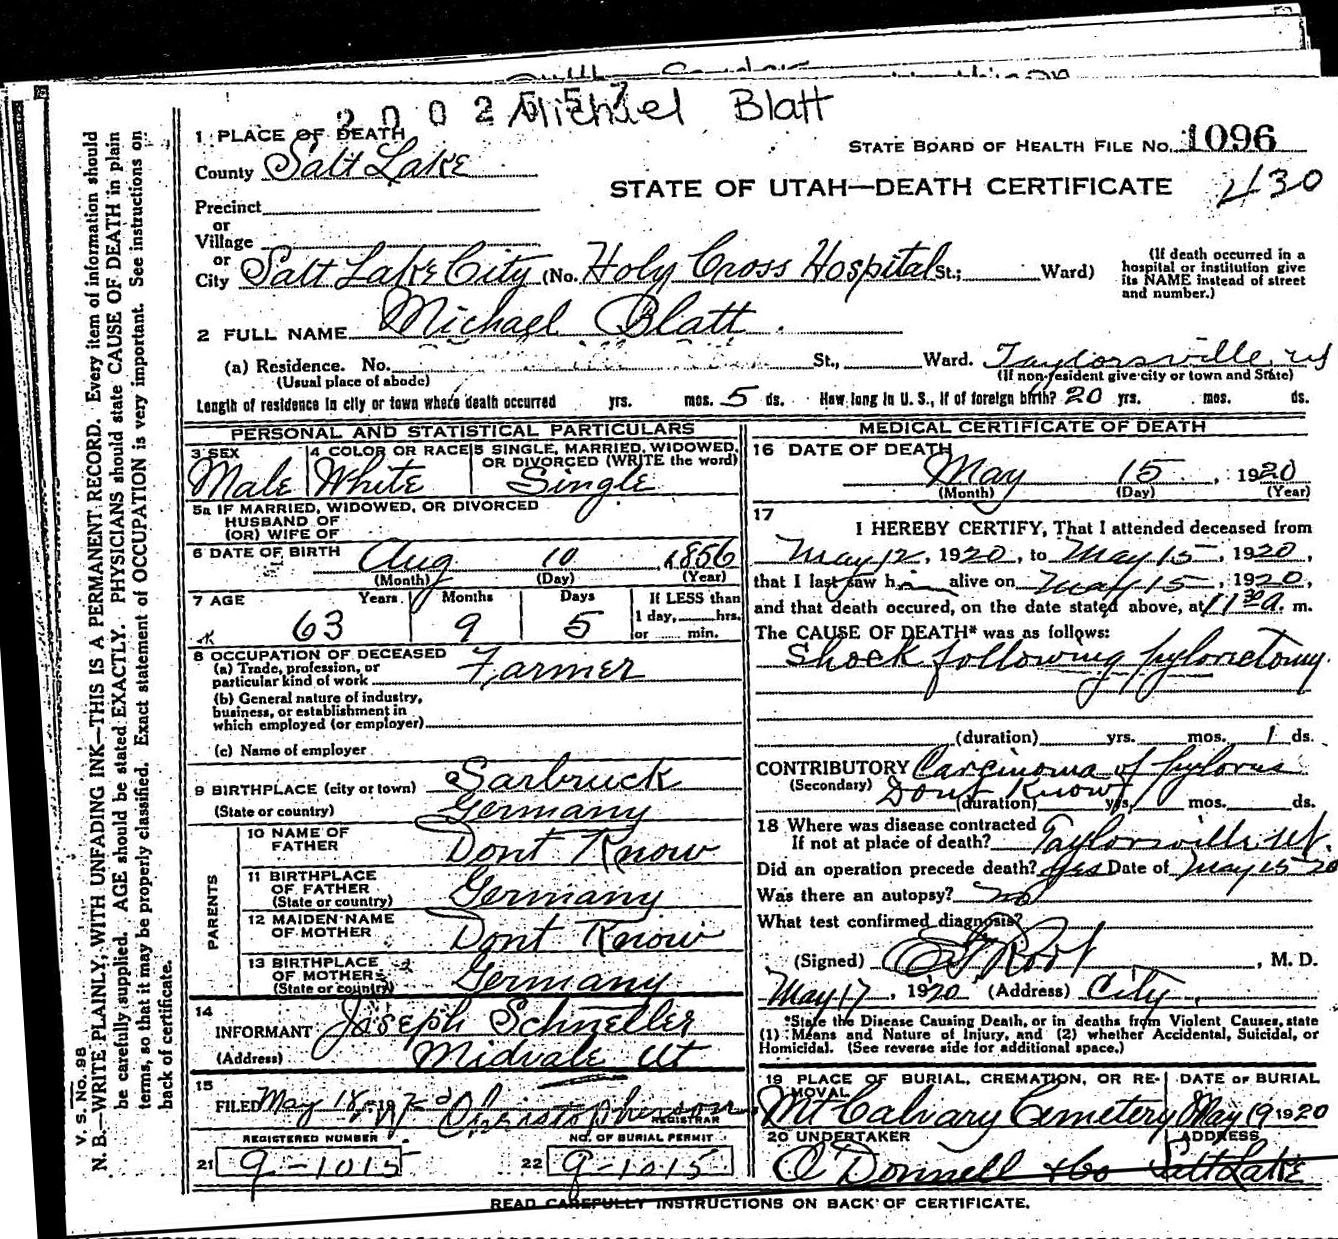 2 0 0 2 5 5 7
Michael Blatt
1 PLACE OF DEATH
STATE BOARD OF HEALTH FILE NO. 1096
County Salt Lake
STATE OF UTAH—DEATH CERTIFICATE 430
Precinct
or
Village
or
City Salt Lake City (No. Holy Cross Hospital St.; Ward)
(If death occurred in a hospital or institution give its NAME instead of street and number.)
2 FULL NAME Michael Blatt.
(a) Residence. No. St., Ward. Taylorsville, Ut
(Usual place of abode) (If non-resident give city or town and State)
Length of residence in city or town where death occurred yrs. mos. 5 ds. How long in U. S., if of foreign birth? 20 yrs. mos. ds.
PERSONAL AND STATISTICAL PARTICULARS
3 SEX Male
4 COLOR OR RACE White
5 SINGLE, MARRIED, WIDOWED, OR DIVORCED (WRITE the word) Single
5a IF MARRIED, WIDOWED, OR DIVORCED
HUSBAND OF
(OR) WIFE OF
6 DATE OF BIRTH Aug 10, 1856
(Month) (Day) (Year)
7 AGE Years Months Days If LESS than
63 9 5 1 day, hrs.
or min.
8 OCCUPATION OF DECEASED
(a) Trade, profession, or
particular kind of work Farmer
(b) General nature of industry,
business, or establishment in
which employed (or employer)
(c) Name of employer
9 BIRTHPLACE (city or town) Sarbruck
(State or country) Germany
PARENTS
10 NAME OF FATHER Dont Know
11 BIRTHPLACE OF FATHER (State or country) Germany
12 MAIDEN NAME OF MOTHER Dont Know
13 BIRTHPLACE OF MOTHER (State or country) Germany
14
INFORMANT Joseph Schneller
(Address) Midvale Ut
15
FILED May 18, Christopherson
REGISTRAR
REGISTERED NUMBER NO. OF BURIAL PERMIT
21 9-1015 22 9-1015
MEDICAL CERTIFICATE OF DEATH
16 DATE OF DEATH
May 15, 1920
(Month) (Day) (Year)
17
I HEREBY CERTIFY, That I attended deceased from
May 12, 1920, to May 15, 1920,
that I last saw him alive on May 15, 1920,
and that death occured, on the date stated above, at 11 30 a. m.
The CAUSE OF DEATH* was as follows:
Shock following pylorectomy.
(duration) yrs. mos. 1 ds.
CONTRIBUTORY Carcinoma of pylorus
(Secondary) Dont Know
(duration) yrs. mos. ds.
18 Where was disease contracted
If not at place of death? Taylorsville, Ut.
Did an operation precede death? Yes Date of May 15-20
Was there an autopsy? no
What test confirmed diagnosis?
(Signed) , M. D.
May 17, 1920 (Address) City.
*State the Disease Causing Death, or in deaths from Violent Causes, state
(1) Means and Nature of Injury, and (2) whether Accidental, Suicidal, or
Homicidal. (See reverse side for additional space.)
19 PLACE OF BURIAL, CREMATION, OR REMOVAL DATE OF BURIAL
Mt Calvary Cemetery May 19 1920
20 UNDERTAKER ADDRESS
O'Donnell & Co Salt Lake
READ CAREFULLY INSTRUCTIONS ON BACK OF CERTIFICATE.
V. S. No. 98
N. B.—WRITE PLAINLY, WITH UNFADING INK—THIS IS A PERMANENT RECORD. Every item of information should
be carefully supplied. AGE should be stated EXACTLY. PHYSICIANS should state CAUSE OF DEATH in plain
terms, so that it may be properly classified. Exact statement of OCCUPATION is very important. See instructions on
back of certificate.